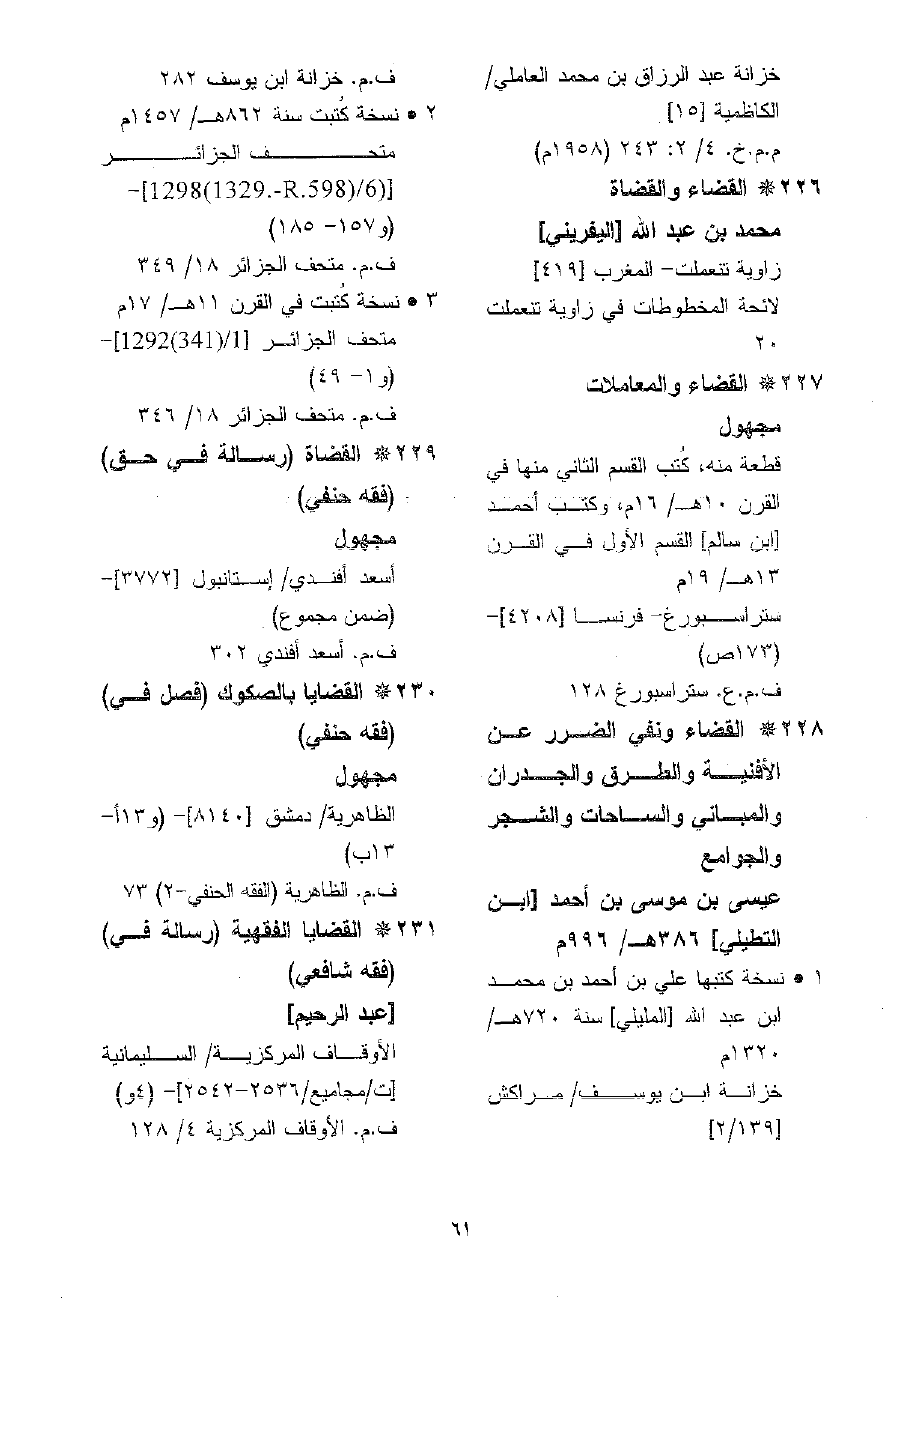 خزانة عبد الرزاق بن محمد العاملي/
الكاظمية [١٥]
م.م.خ. ٤/ ٢: ٢٤٣ (١٩٥٨م)
٢٢٦* القضاء والقضاة
محمد بن عبد الله [اليفريني]
زاوية تنعملت- المغرب [٤١٩]
لائحة المخطوطات في زاوية تنعملت
٢٠
٢٢٧* القضاء والمعاملات
مجهول
قطعة منه، كُتب القسم الثاني منها في
القرن ١٠هـ/ ١٦م، وكتب أحمد
[ابن سالم] القسم الأول في القرن
١٣هـ/ ١٩م
ستراسبورغ- فرنسا [٤٢٠٨]-
(١٧٣ص)
ف.م.ع. ستراسبورغ ١٢٨
٢٢٨* القضاء ونفي الضرر عن
الأفنية والطرق والجدران
والمباني والساحات والشجر
والجوامع
عيسى بن موسى بن أحمد [ابن
التطيلي] ٣٨٦هـ/ ٩٩٦م
١ • نسخة كتبها علي بن أحمد بن محمد
ابن عبد الله [المليلي] سنة ٧٢٠هـ/
١٣٢٠م
خزانة ابن يوسف/ مراكش
[٢/١٣٩]
ف.م. خزانة ابن يوسف ٢٨٢
٢ • نسخة كُتبت سنة ٨٦٢هـ/ ١٤٥٧م
متحف الجزائر
[1298(1329.-R.598)/6)]-
(و١٥٧- ١٨٥)
ف.م. متحف الجزائر ١٨/ ٣٤٩
٣ • نسخة كُتبت في القرن ١١هـ/ ١٧م
متحف الجزائر [1292(341)/1]-
(و١- ٤٩)
ف.م. متحف الجزائر ١٨/ ٣٤٦
٢٢٩* القضاة (رسالة في حق)
(فقه حنفي)
مجهول
أسعد أفندي/ إستانبول [٣٧٧٢]-
(ضمن مجموع)
ف.م. أسعد أفندي ٣٠٢
٢٣٠* القضايا بالصكوك (فصل في)
(فقه حنفي)
مجهول
الظاهرية/ دمشق [٨١٤٠]- (و١٣أ-
١٣ب)
ف.م. الظاهرية (الفقه الحنفي-٢) ٧٣
٢٣١* القضايا الفقهية (رسالة في)
(فقه شافعي)
[عبد الرحيم]
الأوقاف المركزية/ السليمانية
[ت/مجاميع/٢٥٣٦-٢٥٤٢]- (٤و)
ف.م. الأوقاف المركزية ٤/ ١٢٨
٦١